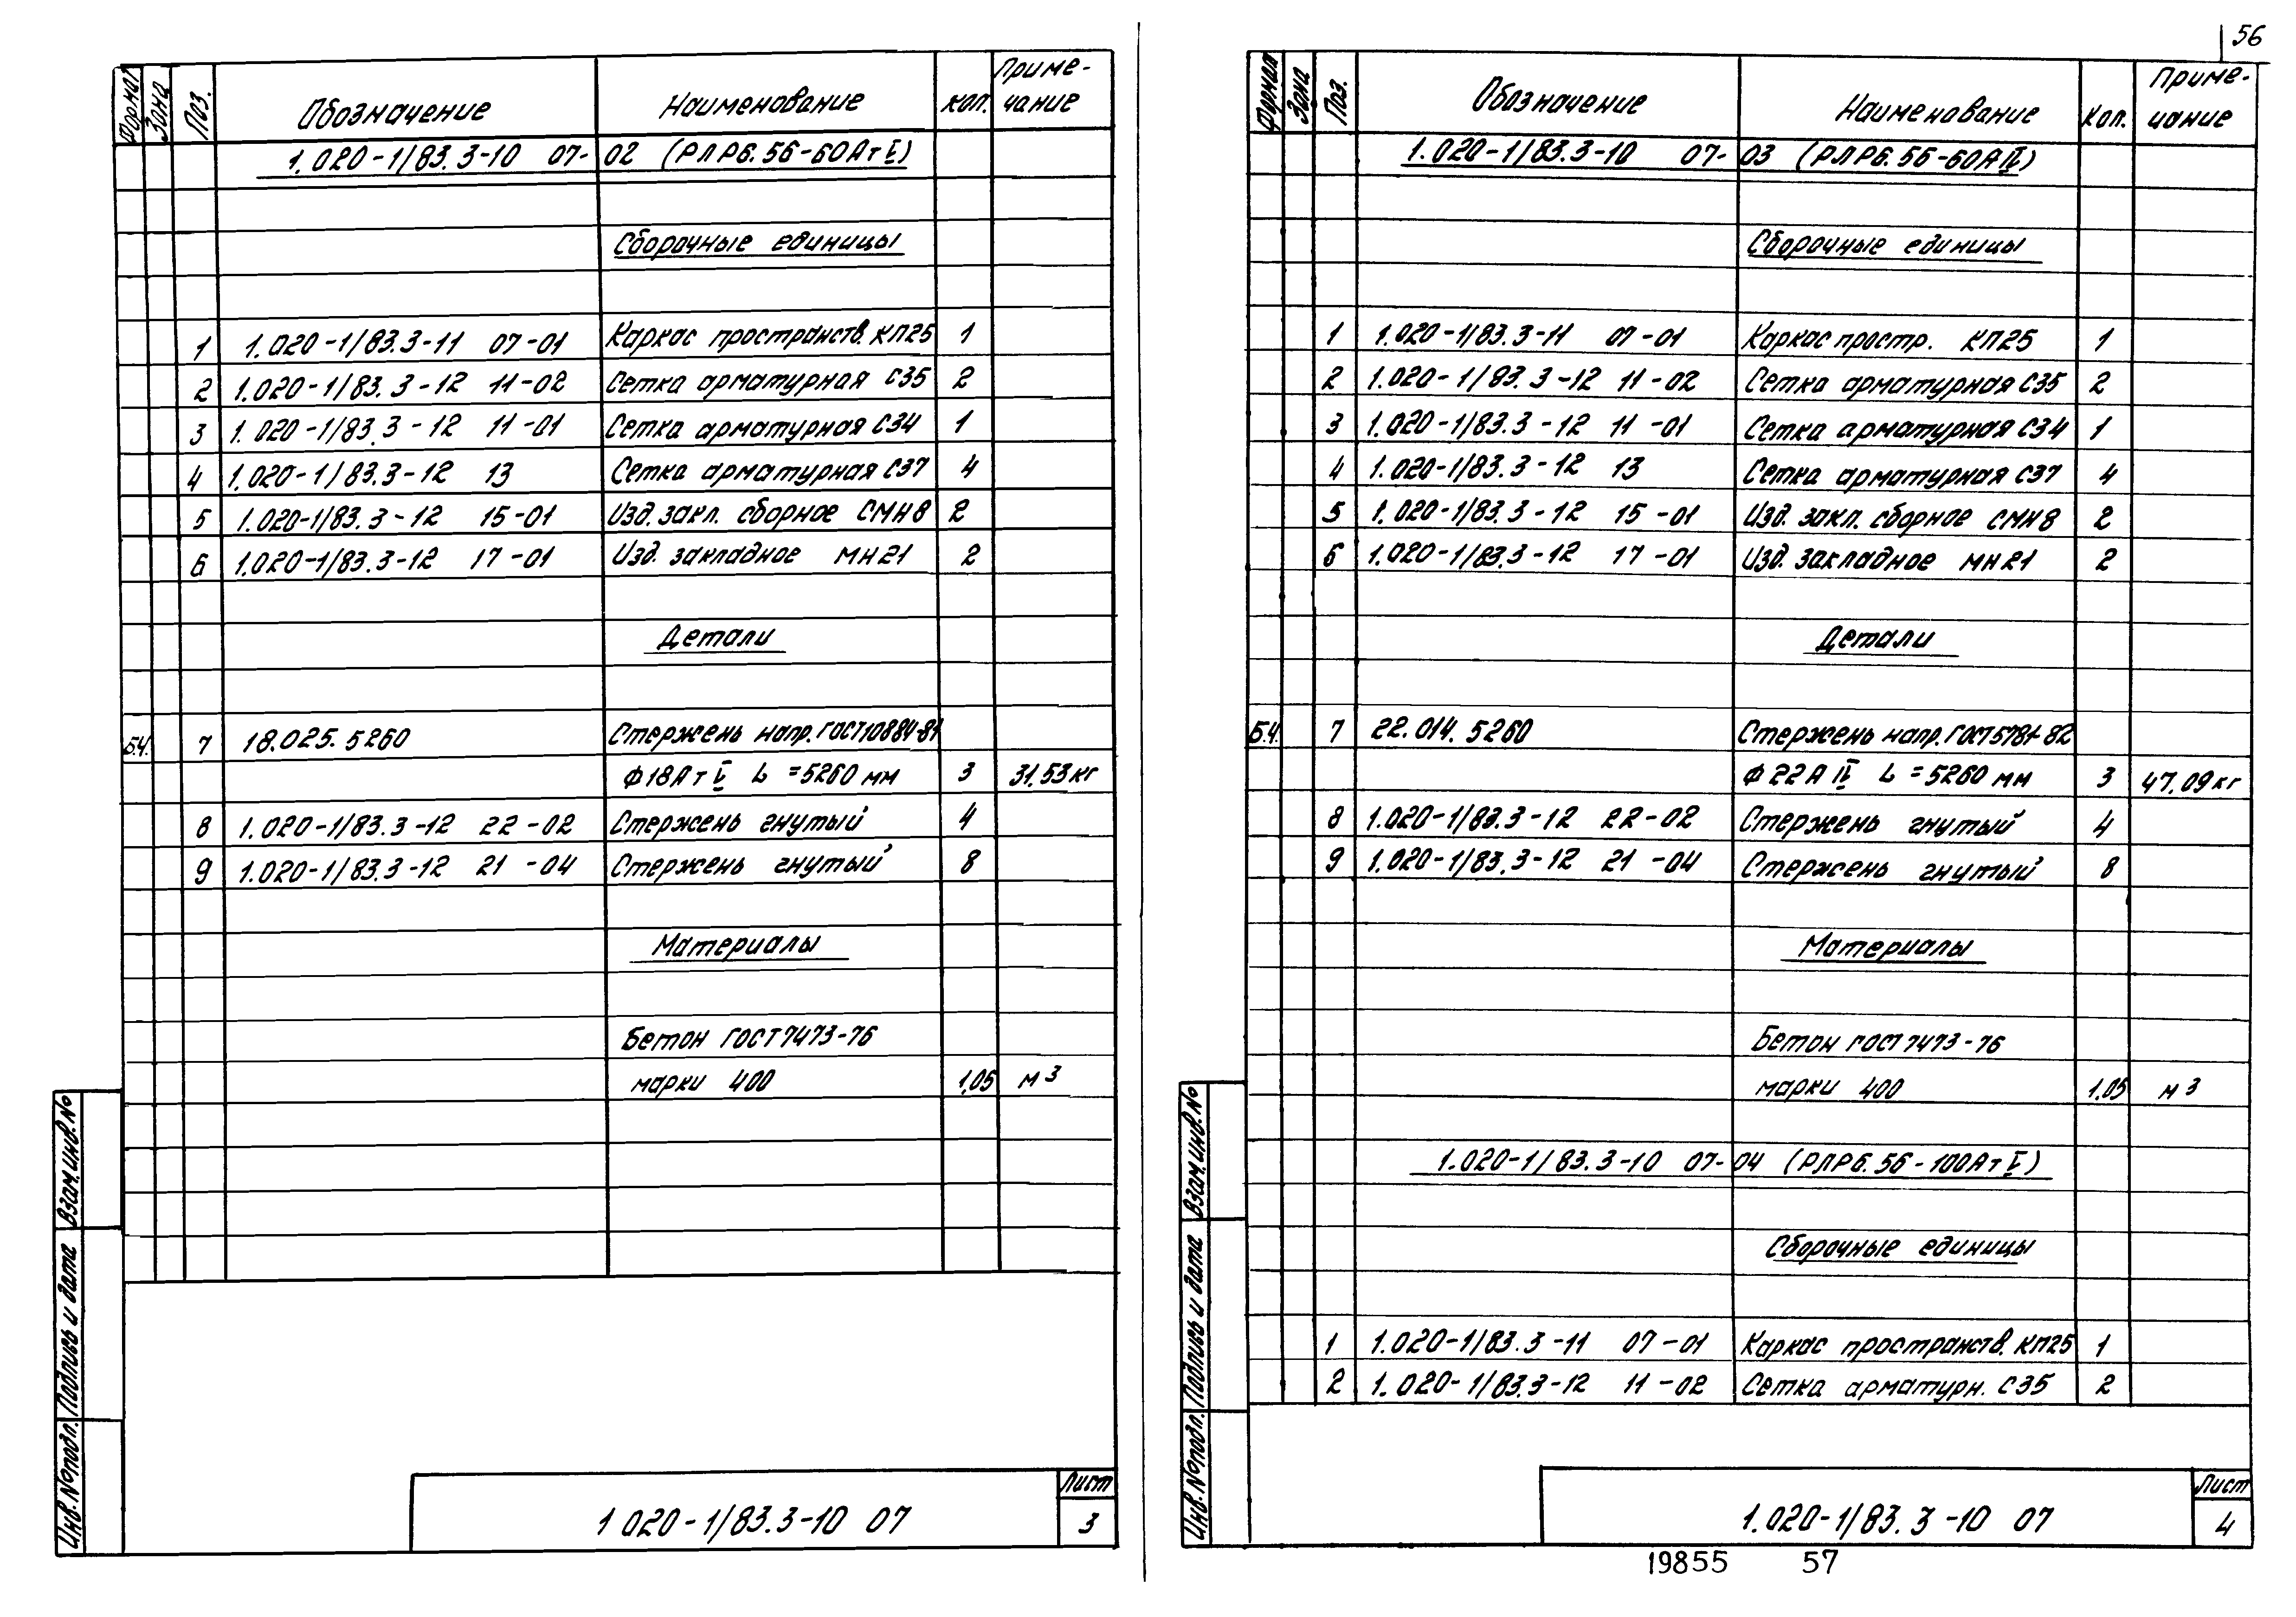 56
Формат Зона Поз. Обозначение Наименование Кол. Приме-
чание
1.020-1/83.3-10 07-02 (РЛР6.56-60АтV)
Сборочные единицы
1 1.020-1/83.3-11 07-01 Каркас пространств. КП25 1
2 1.020-1/83.3-12 11-02 Сетка арматурная С35 2
3 1.020-1/83.3-12 11-01 Сетка арматурная С34 1
4 1.020-1/83.3-12 13 Сетка арматурная С37 4
5 1.020-1/83.3-12 15-01 Изд. закл. сборное СМН8 2
6 1.020-1/83.3-12 17-01 Изд. закладное МН21 2
Детали
Б.Ч. 7 18.025.5260 Стержень напр. ГОСТ10884-81
Ф18АтV L=5260 мм 3 31.53 кг
8 1.020-1/83.3-12 22-02 Стержень гнутый 4
9 1.020-1/83.3-12 21-04 Стержень гнутый 8
Материалы
Бетон ГОСТ 7473-76
марки 400 1,05 м3
Взам.инв.№
Подпись и дата
Инв.№подл.
1 020-1/83.3-10 07
Лист
3
Формат Зона Поз. Обозначение Наименование Кол. Приме-
чание
1.020-1/83.3-10 07-03 (РЛР6.56-60АIV)
Сборочные единицы
1 1.020-1/83.3-11 07-01 Каркас простр. КП25 1
2 1.020-1/83.3-12 11-02 Сетка арматурная С35 2
3 1.020-1/83.3-12 11-01 Сетка арматурная С34 1
4 1.020-1/83.3-12 13 Сетка арматурная С37 4
5 1.020-1/83.3-12 15-01 Изд. закл. сборное СМН8 2
6 1.020-1/83.3-12 17-01 Изд. закладное МН21 2
Детали
Б.Ч. 7 22.014.5260 Стержень напр. ГОСТ5781-82
Ф22АIV L=5260 мм 3 47.09 кг
8 1.020-1/83.3-12 22-02 Стержень гнутый 4
9 1.020-1/83.3-12 21-04 Стержень гнутый 8
Материалы
Бетон ГОСТ 7473-76
марки 400 1.05 м3
1.020-1/83.3-10 07-04 (РЛР6.56-100АтV)
Сборочные единицы
1 1.020-1/83.3-11 07-01 Каркас пространств. КП25 1
2 1.020-1/83.3-12 11-02 Сетка арматурн. С35 2
Взам.инв.№
Подпись и дата
Инв.№подл.
1.020-1/83.3-10 07
Лист
4
19855 57